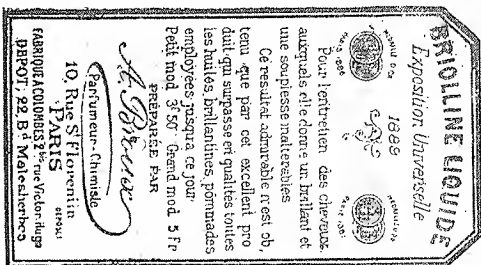 BRIOLLINE LIQUIDE
Exposition Universelle
1889
MEDAILLE D'OR
PARIS 1886
Pour l'entretien des cheveux
auxquels elle donne un brillant et
une souplesse inalterables
Ce resultat admirable n'est ob,
tenu que par cet excellent pro
duit qui surpasse en qualités toutes
les huiles, brillantines, pommades
employées jusqu'à ce jour
Petit mod. 3f 50 Grand mod. 5 Fr
PRÉPARÉE PAR
Parfumeur-Chimiste
10, Rue St Florentin
PARIS
FABRIQUE A COLOMBES 2bis rue Victor Hugo
DEPOT, 22 Bd Malesherbes